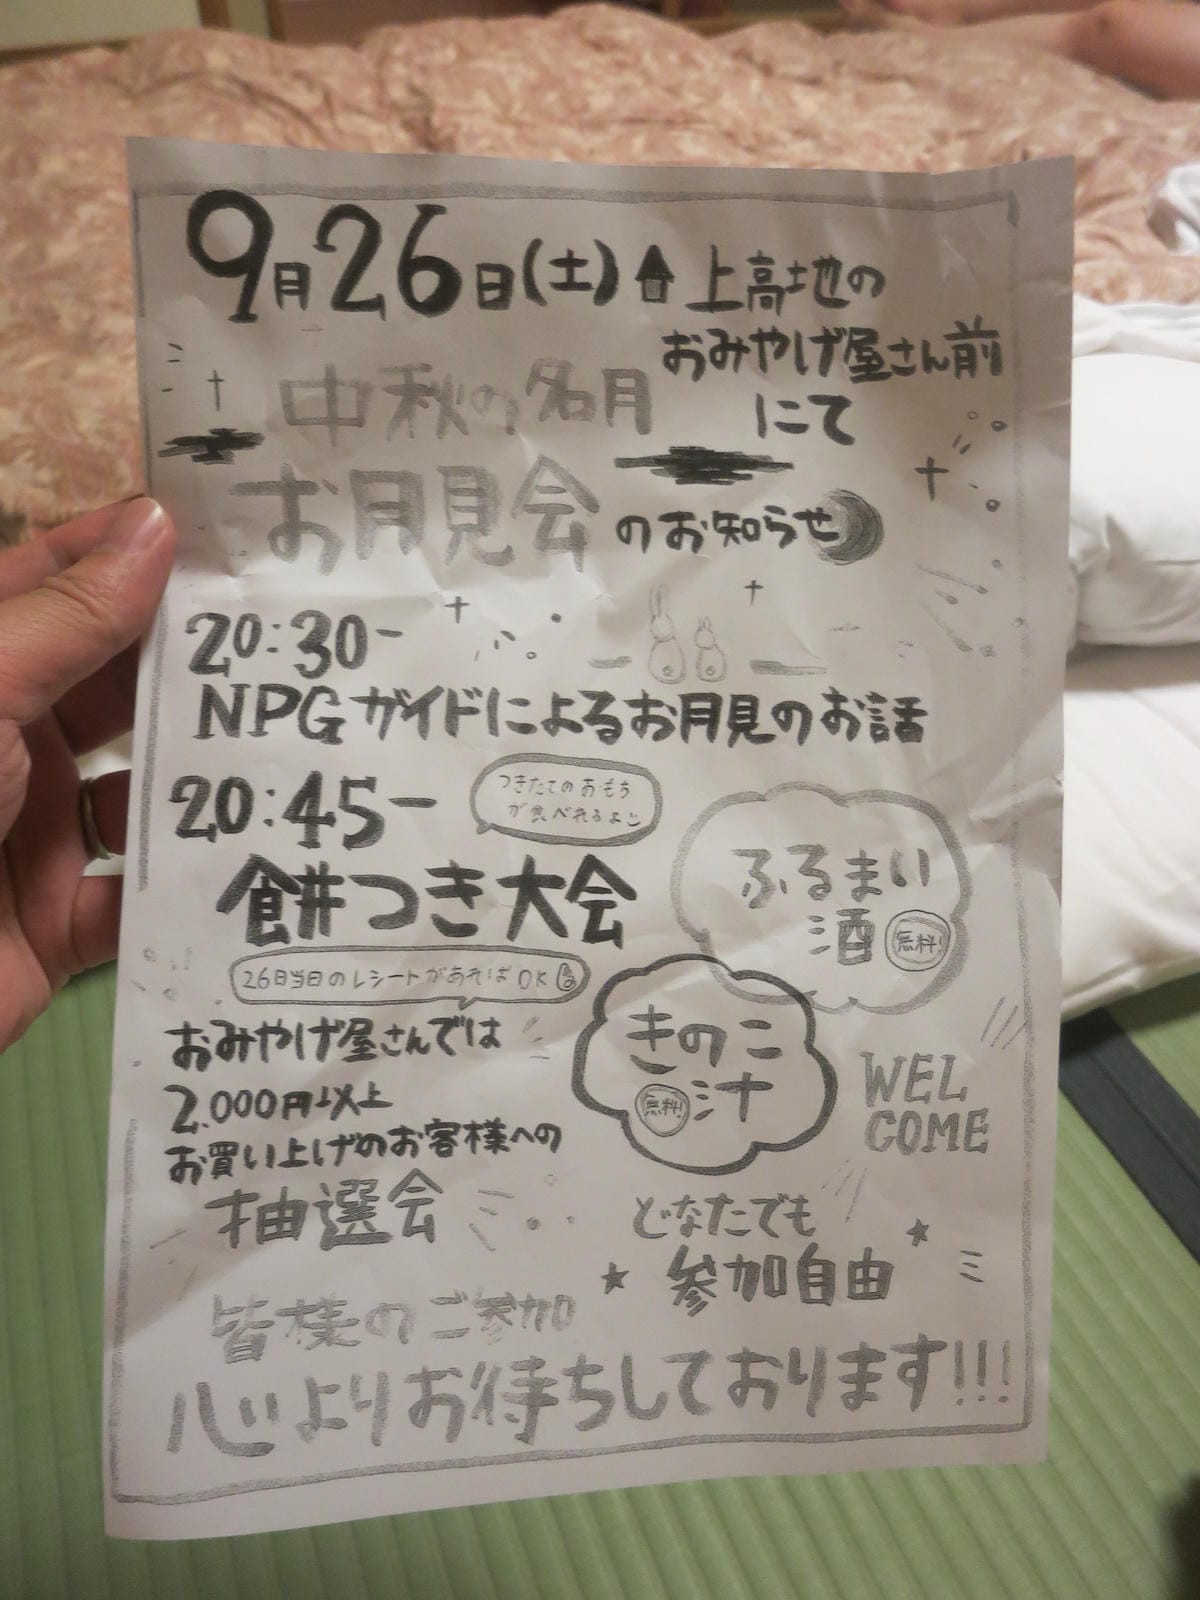 9月26日(土) 上高地の
おみやげ屋さん前
にて
中秋の名月
お月見会のお知らせ
20:30-
NPGガイドによるお月見のお話
20:45-
つきたてのおもち
が食べれるよ
餅つき大会
ふるまい
酒 無料!
26日当日のレシートがあればOK
きのこ
汁 無料!
おみやげ屋さんでは
2.000円以上
お買い上げのお客様への
抽選会
WEL
COME
どなたでも
参加自由
皆様のご参加
心よりお待ちしております!!!